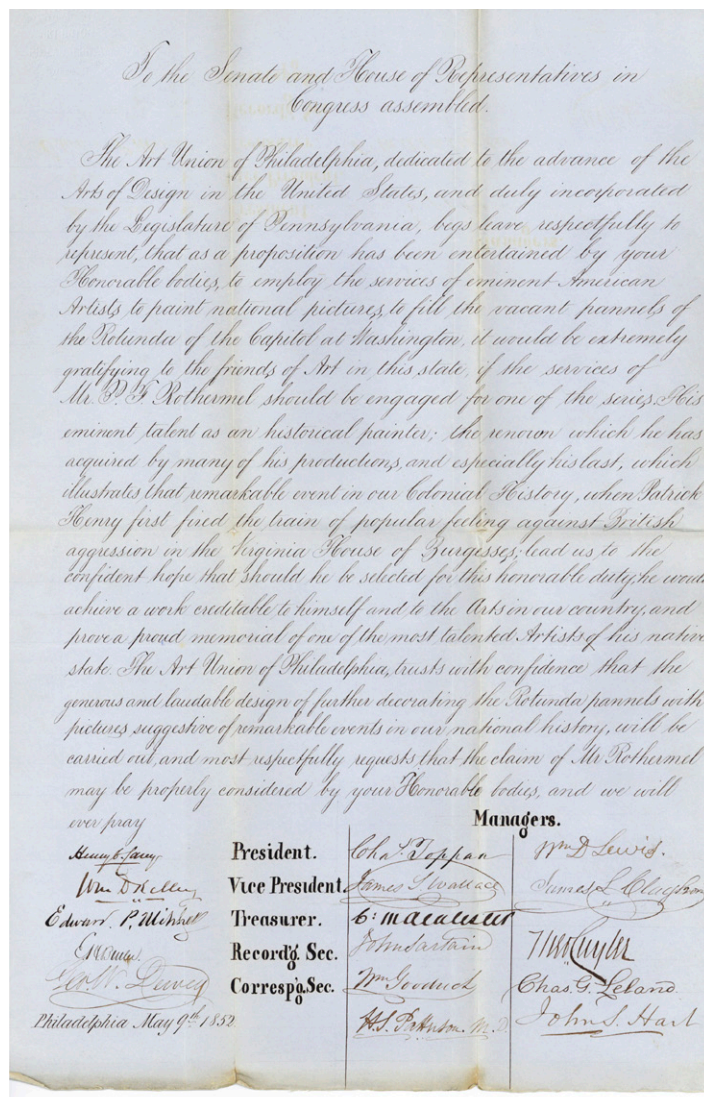 To the Senate and House of Representatives in
Congress assembled.
The Art Union of Philadelphia, dedicated to the advance of the
Arts of Design in the United States, and duly incorporated
by the Legislature of Pennsylvania, begs leave respectfully to
represent, that as a proposition has been entertained by your
Honorable bodies, to employ the services of eminent American
Artists to paint national pictures, to fill the vacant pannels of
the Rotunda of the Capitol at Washington, it would be extremely
gratifying to the friends of Art in this state, if the services of
Mr. P. F. Rothermel should be engaged for one of the series. His
eminent talent as an historical painter; the renown which he has
acquired by many of his productions, and especially his last, which
illustrates that remarkable event in our Colonial History, when Patrick
Henry first fired the train of popular feeling against British
aggression in the Virginia House of Burgesses; lead us to the
confident hope that should he be selected for this honorable duty, he would
achieve a work creditable to himself and to the Arts in our country, and
prove a proud memorial of one of the most talented Artists of his native
state. The Art Union of Philadelphia, trusts with confidence that the
generous and laudable design of further decorating the Rotunda pannels with
pictures suggestive of remarkable events in our national history, will be
carried out, and most respectfully requests, that the claim of Mr Rothermel
may be properly considered by your Honorable bodies, and we will
ever pray
Managers.
Henry C. President. Chas. Toppan Wm D Lewis.
Wm D Kelley Vice President. James S Wallace James L
Edward P. Mitchell Treasurer.
Record'g. Sec. John Sartain Theo Cuyler
Geo W. Dewey Corresp'g. Sec. Wm Chas. G. Leland
H. S. Patterson M.D. John S. Hart
Philadelphia May 9th. 1852